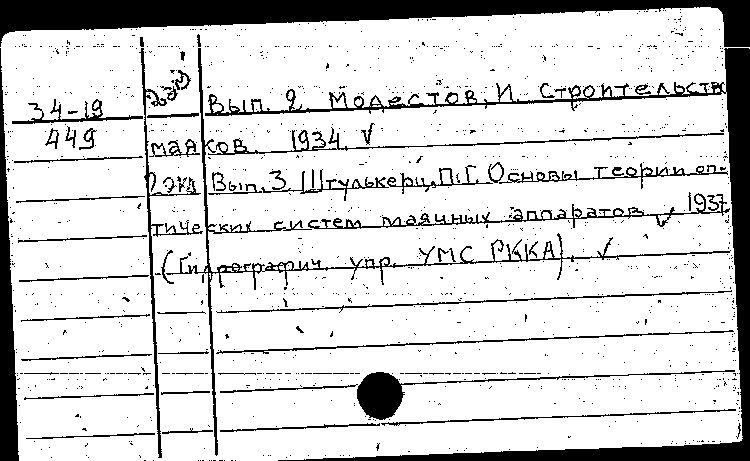 34-19 2экз Вып. 2. Модестов, И. Строительств
449 маяков. 1934. ✓
2экз Вып. 3 Штулькерц, П.Г. Основы теории оп-
тических систем маячных аппаратов ✓ 1937
(Гидрографич. упр. УМС РККА). ✓